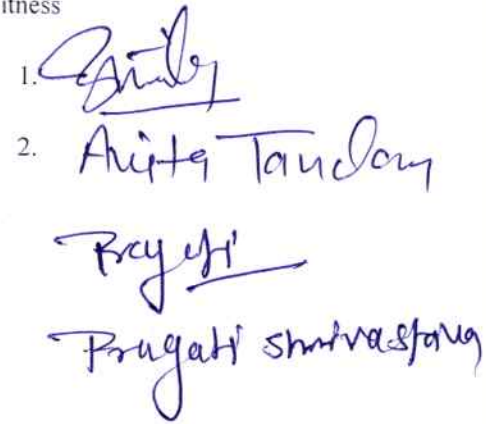 itness
1.
2. Anita Tandon
Pragati
Pragati Shrivastava